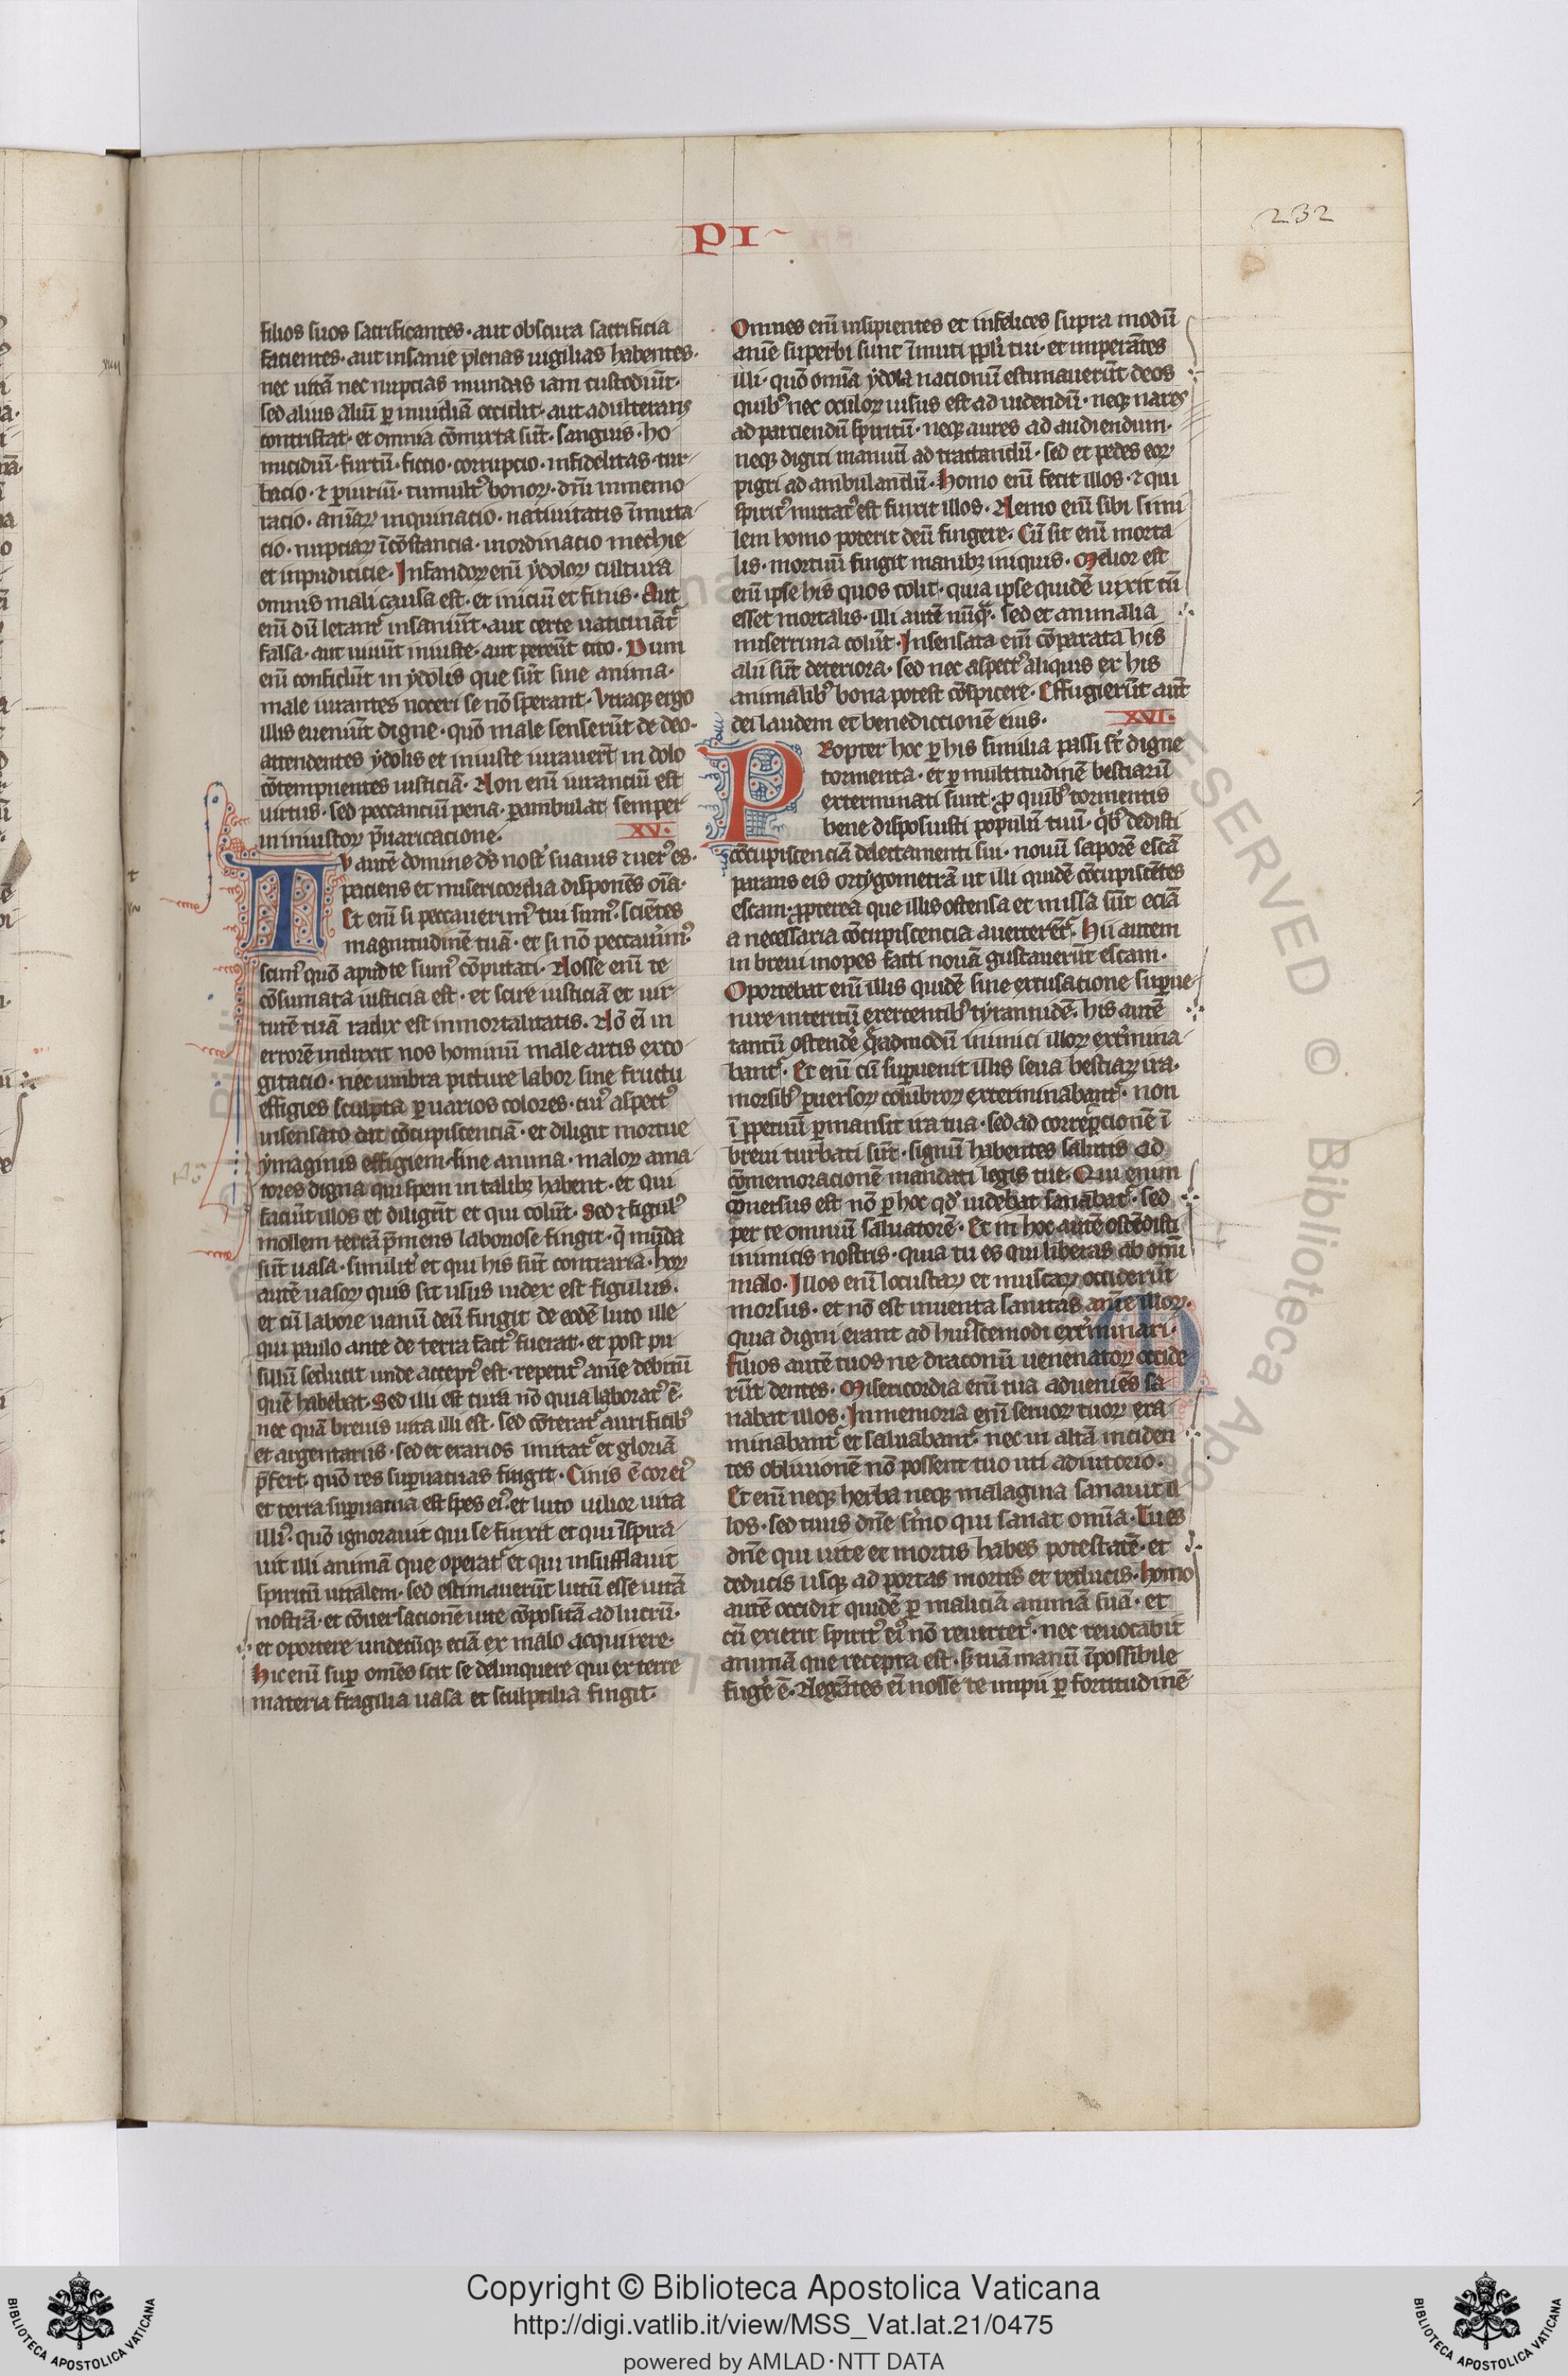 PI
232
filios suos sacrificantes· aut obscura sacrificia
facientes· aut insanie plenas uigilias habentes·
nec uitā nec nupcias mundas iam custodiūt·
sed alius aliū ꝑ inuidiā occidit· aut adulterans
contristat· et omnia cōmixta sūt· sanguis· ho
micidiū· furtū· fictio· corrupcio· infidelitas· tur
bacio· ⁊ ꝑiuriū· tumultꝰ bonoꝝ· dn̄i inmemo
racio· aīaꝝ inquinacio· natiuitatis īmuta
cio· nupciaꝝ īcōstancia· inordinacio mechie
et inpudicicie· Infandoꝝ enī ydoloꝝ cultura
omnis mali causa est· et iniciū et finis· Aut
enī dū letantᷣ insaniūt· aut certe uaticināt᷑
falsa· aut uiuūt iniuste· aut peierāt cito· Dum
enī confidūt in ydolis que sūt sine anima·
male iurantes noceri se nō sperant· Vtraqꝫ ergo
illis eueniūt digne· quō male senserūt de deo·
attendentes ydolis et iniuste iurauerūt in dolo
cōtempnentes iusticiā· Non enī iuranciū est
uirtus· sed peccanciū pena· ꝑambulat semper
in iniustoꝝ p̄uaricacione· XV·
TV autē domine ds̄ nost̄ suauis ⁊ uerꝰ es·
paciens et misericordia disponēs oīa·
Et enī si peccauerimꝰ tui sumꝰ· sciētes
magnitudinē tuā· et si nō peccauīmꝰ
scimꝰ quō apud te sumꝰ cōputati· Nosse enī te
cōsumata iusticia est· et scire iusticiā et uir
tutē tuā radix est inmortalitatis· Nō eī in
errorē induxit nos hominū male artis exco
gitacio· nec umbra picture labor sine fructu
effigies sculpta ꝑ uarios colores· cuiꝰ aspectꝰ
insensato dat cōcupiscenciā· et diligit mortue
ymaginis effigiem sine anima· maloꝝ ama
tores digni qui spem in talibꝫ habent· et qui
faciūt illos et diligūt et qui colūt· Sed ⁊ figulꝰ
mollem terrā p̄mens laboriose fingit· q̄ mūda
sūt uasa· similit᷑ et qui his sūt contraria· hoꝝ
autē uasoꝝ quis sit usus iudex est figulus·
et cū labore uanū deū fingit de eodē luto ille
qui paulo ante de terra factꝰ fuerat· et post pu
sillū seducit unde acceptꝰ est· repetitꝰ anīe debitū
quē habebat· Sed illi est cura nō quia laboratꝰ ē·
nec quā breuis uita illi est· sed cōterat᷑ aurificibꝰ
et argentariis· sed et erarios imitat᷑ et gloriā
p̄fert· quō res suꝑuacuas fingit· Cinis ē cor eiꝰ
et terra suꝑuacua est spes eiꝰ· et luto uilior uita
illiꝰ· quō ignorauit qui se finxit et qui īspira
uit illi animā que operat᷑ et qui insufflauit
spiritū uitalem· sed estimauerūt lutū esse uitā
nostrā· et cōuersacionē uite cōpositā ad lucrū·
et oportere undecūqꝫ eciā ex malo acquirere·
Hic enī suꝑ omēs scit se delinquere qui ex terre
materia fragilia uasa et sculptilia fingit·
Omnes enī insipientes et infelices supra modū
anīe superbi sunt īmici ppl̄i tui· et imperātes
illi· quō omīa ydola nacionū estimauerūt deos
quibꝰ nec oculoꝝ uisus est ad uidendū· neqꝫ nares
ad ꝑciendū spiritū· neqꝫ aures ad audiendum·
neqꝫ digiti manuū ad tractandū· sed et pedes eoꝝ
pigri ad ambulandū· Homo enī fecit illos· ⁊ qui
spiritꝰ mutatꝰ est finxit illos· Nemo enī sibi simi
lem homo poterit deū fingere· Cū sit enī morta
lis· mortuū fingit manibꝫ iniquis· Melior est
enī ipse his quos colit· quia ipse quidē uixit cū
esset mortalis· illi autē nūqᷓ· sed et animalia
miserrima colūt· Insensata enī cōparata his
alii sūt deteriora· sed nec aspectꝰ aliquis ex his
animalibꝰ bona potest cōspicere· Effugierūt aūt
dei laudem et benedictionē eius· XVI·
PRopter hoc ꝑ his similia passi sūt digne
tormenta· et ꝑ multitudinē bestiarū
exterminati sunt· Pro quibꝰ tormentis
bene disposuisti populū tuū· qͥbꝰ dedisti
cōcupiscenciā delectamenti sui· nouū saporē escā
parans eis ortygometrā ut illi quidē cōcupiscētes
escam· ꝓpterea que illis ostensa et missa sūt eciā
a necessaria cōcupiscencia auerterēt᷑· Hii autem
in breui inopes facti nouā gustauerūt escam·
Oportebat enī illis quidē sine excusatione suꝑue
nire interitū exercentibꝰ tyrannidē· his autē
tantū ostendē qᷓadmodū inimici illoꝝ ext̄mina
bant᷑· Et enī cū suꝑuenit illis seua bestiaꝝ ira·
morsibꝰ ꝑuersoꝝ colubroꝝ exterminabant᷑· non
ī ꝑpetuū ꝑmansit ira tua· sed ad correpcionē ī
breui turbati sūt· signū habentes salutis ad
cōmemoracionē mandati legis tue· Qui enim
ꝯuersus est nō ꝑ hoc qd̄ uidebat sanabat᷑· sed
per te omniū saluatorē· Et in hoc autē ostēdisti
inimicis nostris· quia tu es qui liberas ab omī
malo· Illos enī locustaꝝ et muscaꝝ occiderūt
morsus· et nō est inuenta sanitas anīe illoꝝ·
quia digni erant ab huiꝰcemodi ext̄minari·
Filios autē tuos ne draconū uenenatoꝝ occide
rūt dentes· Misericordia enī tua adueniēs sa
nabat illos· In memoria enī sermoꝝ tuoꝝ exa
minabant᷑ et saluabant᷑· nec in altā inciden
tes obliuionē nō possent tuo uti adiutorio·
Et enī neqꝫ herba neqꝫ malagma sanauit il
los· sed tuus dn̄e sermo qui sanat omīa· Tu es
dn̄e qui uite et mortis habes potestatē· et
deducis usqꝫ ad portas mortis et reducis· Homo
autē occidit quidē ꝑ maliciā animā suā· et
cū exierit spiritꝰ eiꝰ nō reuertet᷑· nec reuocabit
animā que recepta est· sꝫ tuā manū īpossibile
fugē ē· Negātes eī nosse te impii ꝑ fortitudinē
RESERVED © Biblioteca Apo
Copyright © Biblioteca Apostolica Vaticana
http://digi.vatlib.it/view/MSS_Vat.lat.21/0475
powered by AMLAD·NTT DATA
BIBLIOTECA APOSTOLICA VATICANA
BIBLIOTECA APOSTOLICA VATICANA